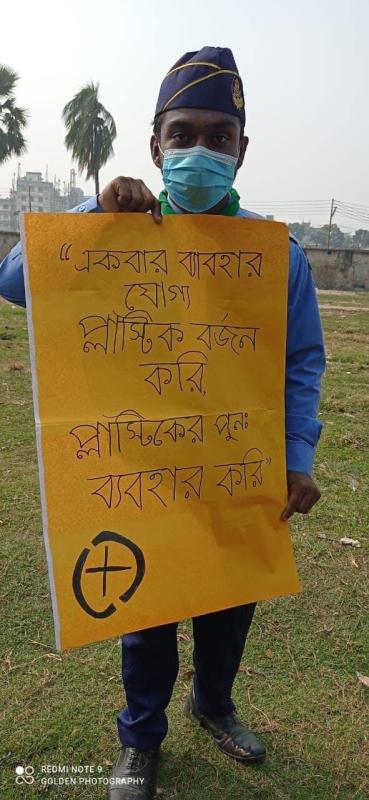 “একবার ব্যবহার
যোগ্য
প্লাস্টিক বর্জন
করি,
প্লাস্টিকের পুনঃ
ব্যবহার করি”
REDMI NOTE 9
GOLDEN PHOTOGRAPHY